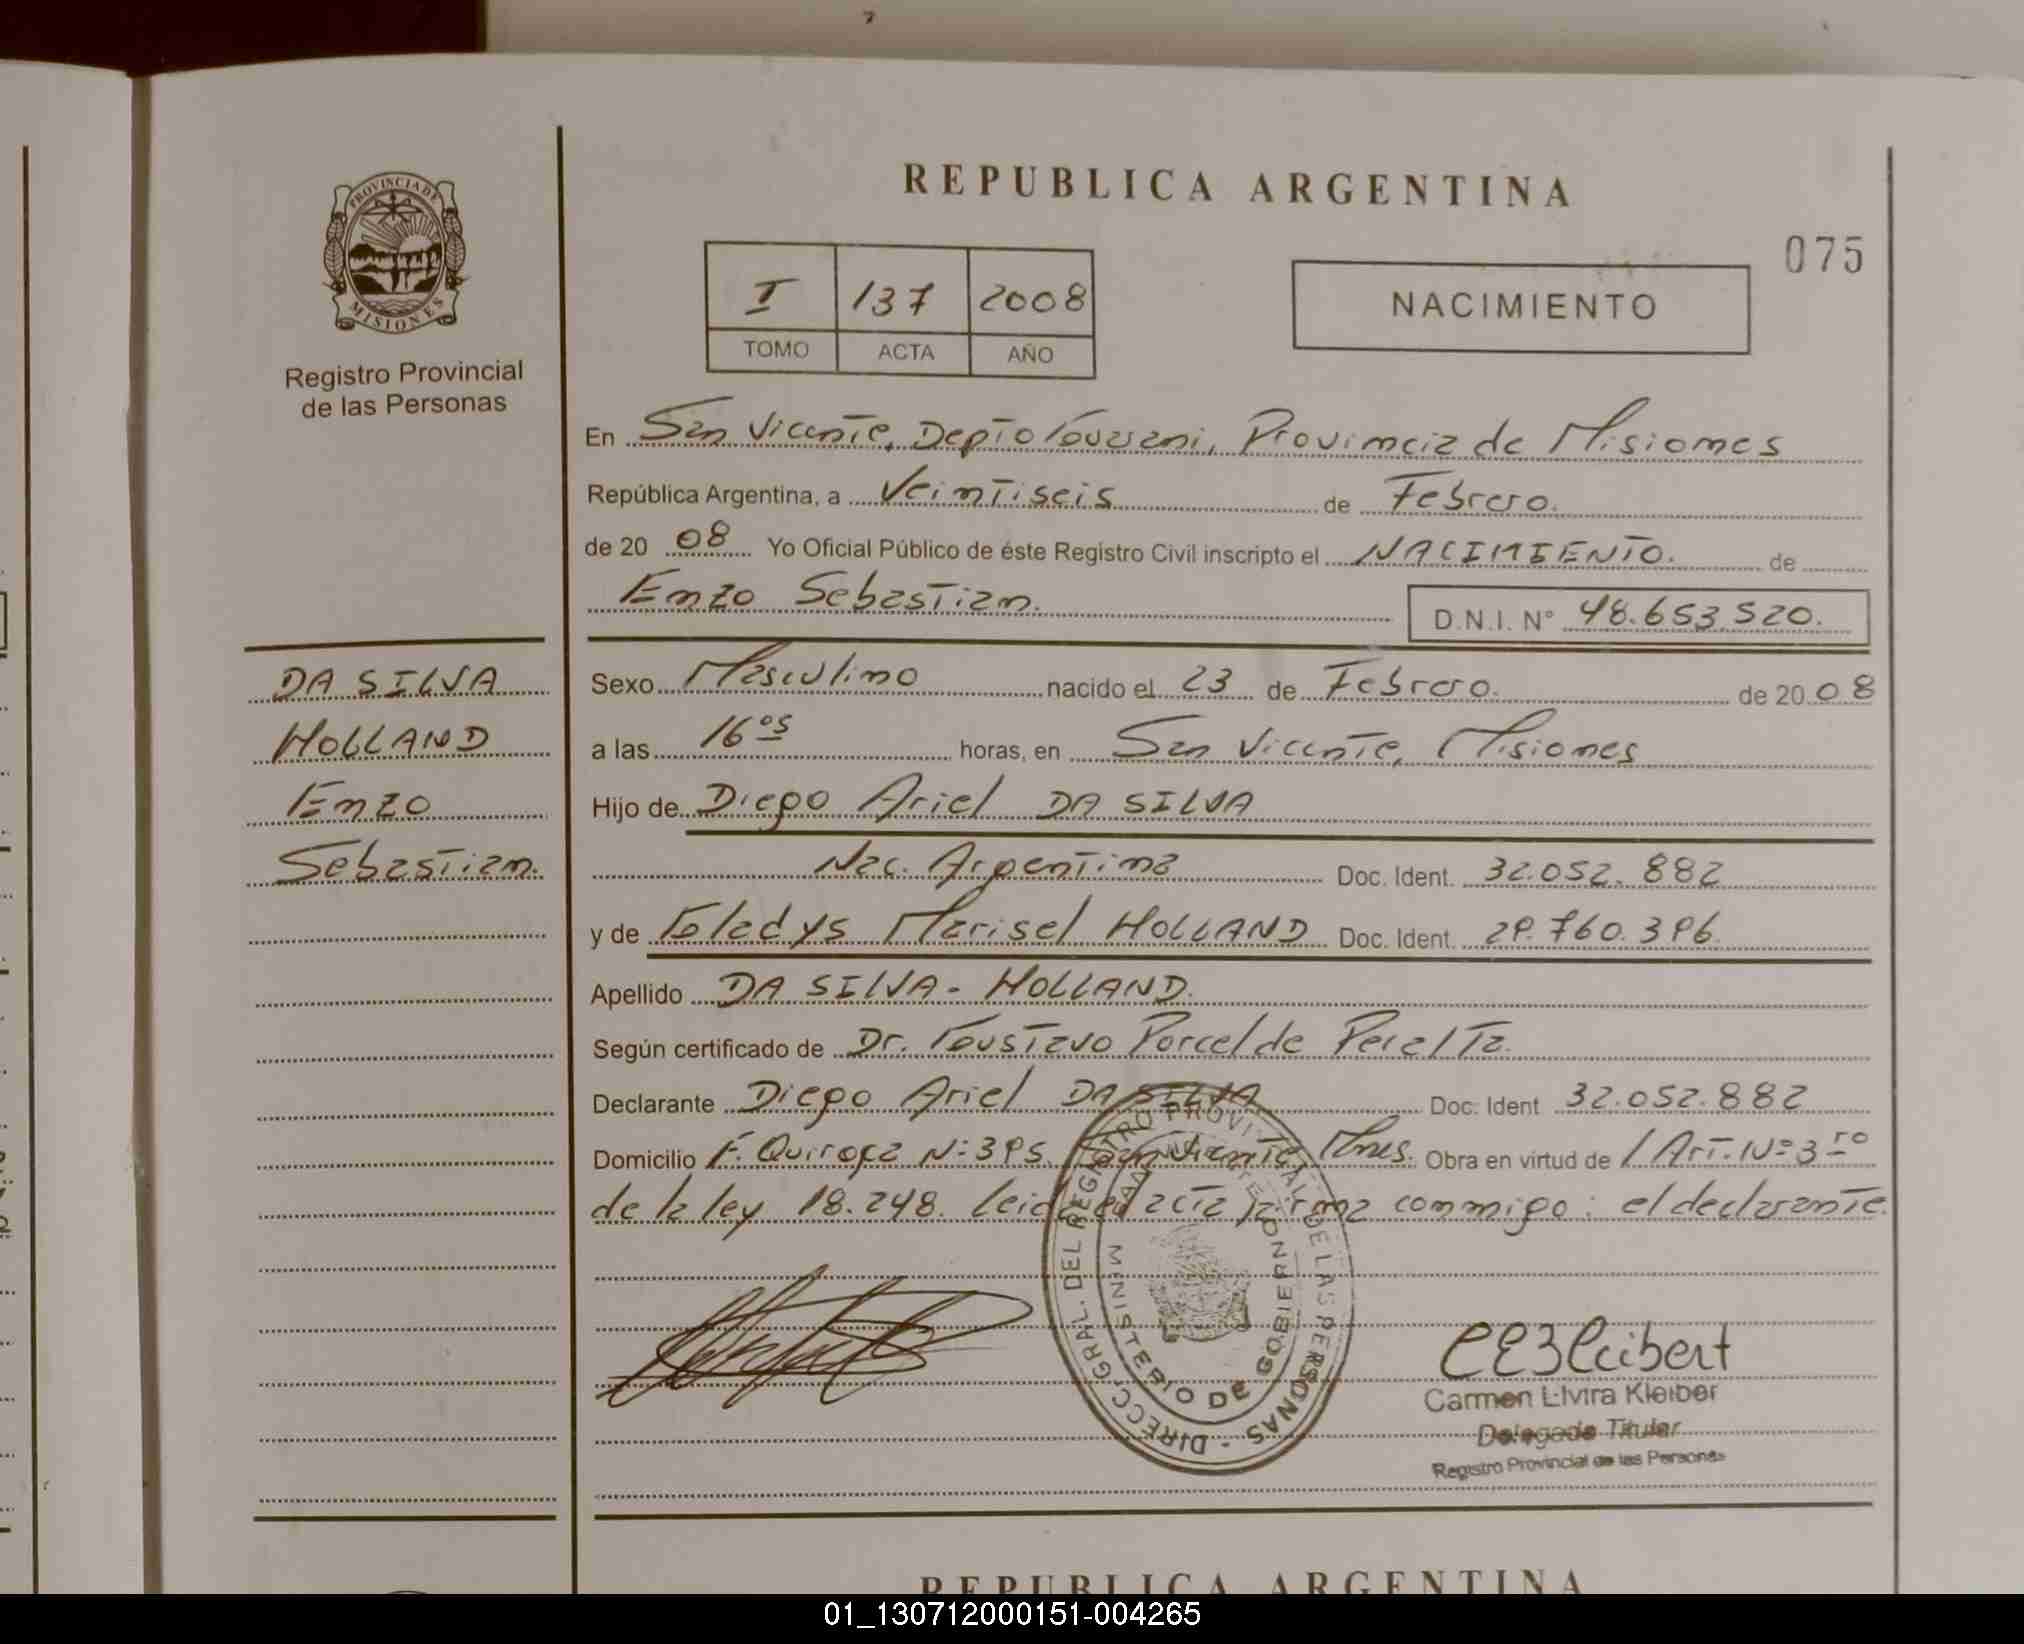 PROVINCIA DE
MISIONES
Registro Provincial
de las Personas
REPUBLICA ARGENTINA
075
I 137 2008
TOMO ACTA AÑO
NACIMIENTO
En San Vicente, Depto Guarani, Provincia de Misiones
República Argentina, a Veintiseis de Febrero.
de 20 08 Yo Oficial Público de éste Registro Civil inscripto el NACIMIENTO. de
Enzo Sebastian. D.N.I. Nº 48.653.520.
DA SILVA
HOLLAND
Enzo
Sebastian.
Sexo Masculino nacido el 23 de Febrero. de 20 08
a las 16os horas, en San Vicente, Misiones
Hijo de Diego Ariel DA SILVA
Nac. Argentina Doc. Ident. 32.052.882
y de Gladys Marisel HOLLAND Doc. Ident. 29.760.396.
Apellido DA SILVA - HOLLAND.
Según certificado de Dr. Gustavo Porcel de Peralta.
Declarante Diego Ariel DA SILVA Doc. Ident 32.052.882
Domicilio F. Quiroga Nº 395. San Vicente, Mnes. Obra en virtud de / Art. Nº 3ro
de la ley 18.248. Leida el acta firma conmigo: el declarante.
DIRECC. GRAL. DEL REGISTRO PROVINCIAL DE LAS PERSONAS -
MINISTERIO DE GOBIERNO
Carmen Elvira Kleiber
Delegado Titular
Registro Provincial de las Personas
REPUBLICA ARGENTINA
01_130712000151-004265